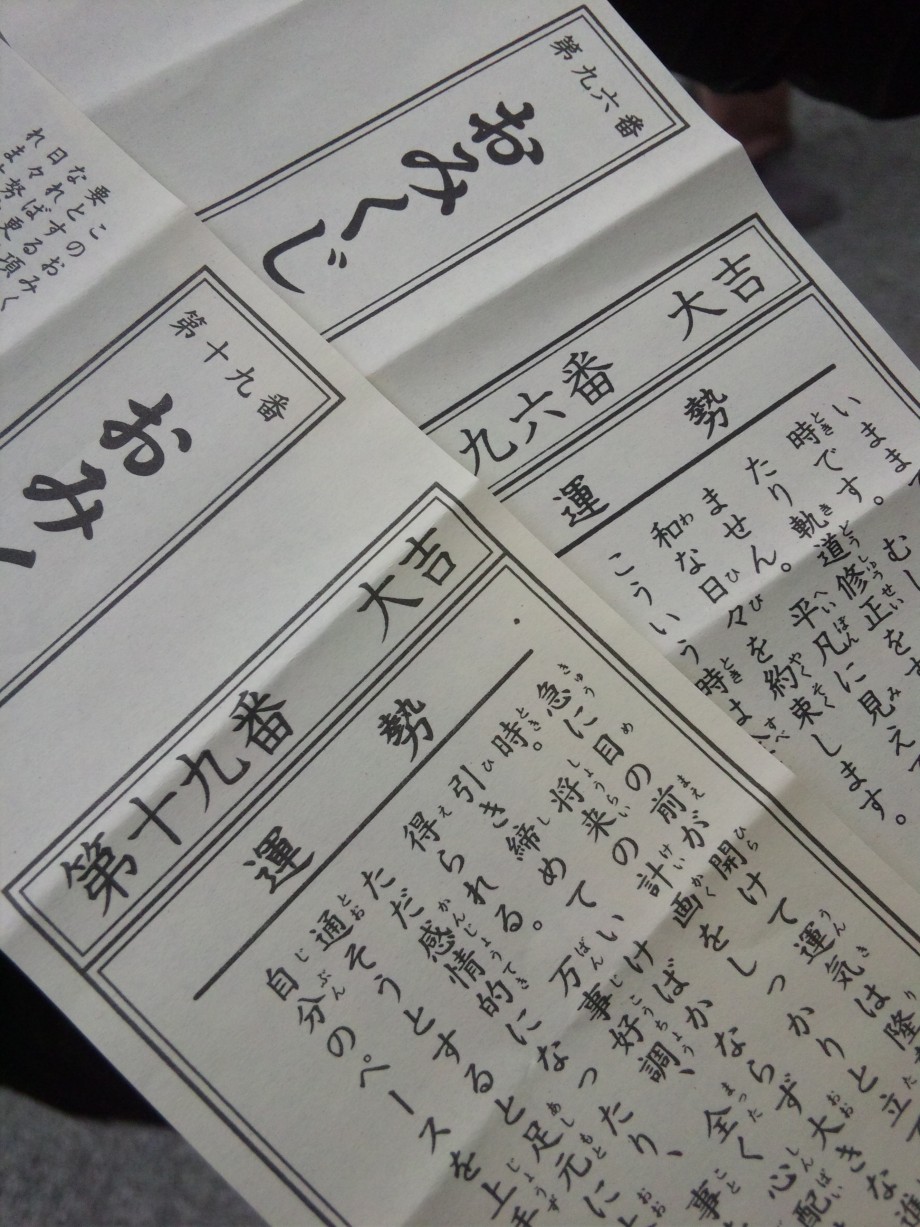 第九六番
おみくじ
九六番 大吉
運勢
いままで
時です。むし
たり軌道修正をす
ません。平凡に見えて
和な日々を約束します。
こういう時は
第十九番
おみ
第十九番 大吉
運勢
急に目の前が開けて運気は隆
時。将来の計画をしっかりと立て
引き締めていけばかならず大きな進
得られる。万事好調、全く心配
ただ感情的になったり、事
通そうとすると足元に
自分のペースを上手